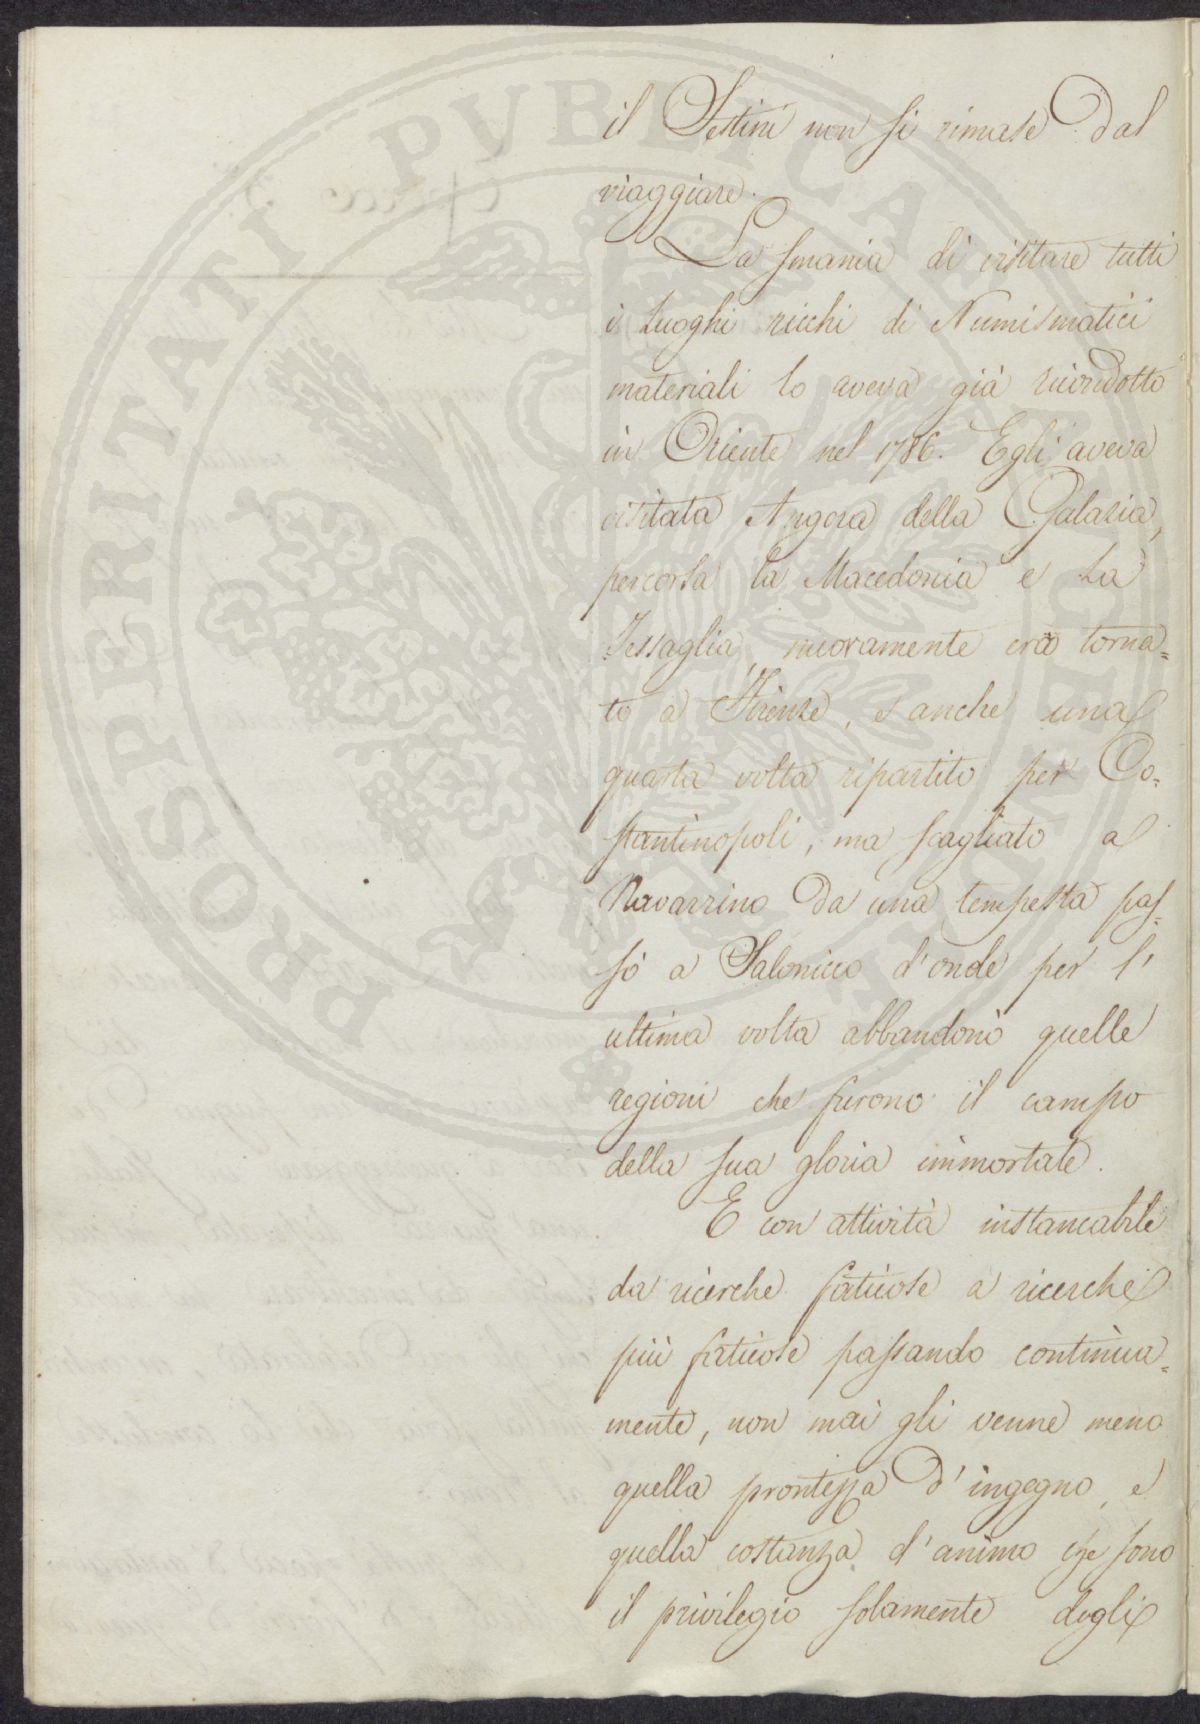 il Sestini non si rimase dal
viaggiare.
La smania di visitare tutti
i Luoghi ricchi di Numismatici
materiali lo aveva già ricondotto
in Oriente nel 1786. Egli aveva
visitata Angora della Galazia,
percorsa la Macedonia e La
Tessaglia, nuovamente era torna=
to a Firenze, e anche una
quarta volta ripartito per Co=
stantinopoli, ma scagliato a
Navarrino da una tempesta pas=
sò a Salonicco d'onde per l'
ultima volta abbandonò quelle
regioni che furono il campo
della sua gloria immortale.
E con attività instancabile
da ricerche faticose a ricerche
più faticose passando continua=
mente, non mai gli venne meno
quella prontezza d'ingegno, e
quella costanza d'animo che sono
il privilegio solamente degli
PROSPERITATI PVBLICAE